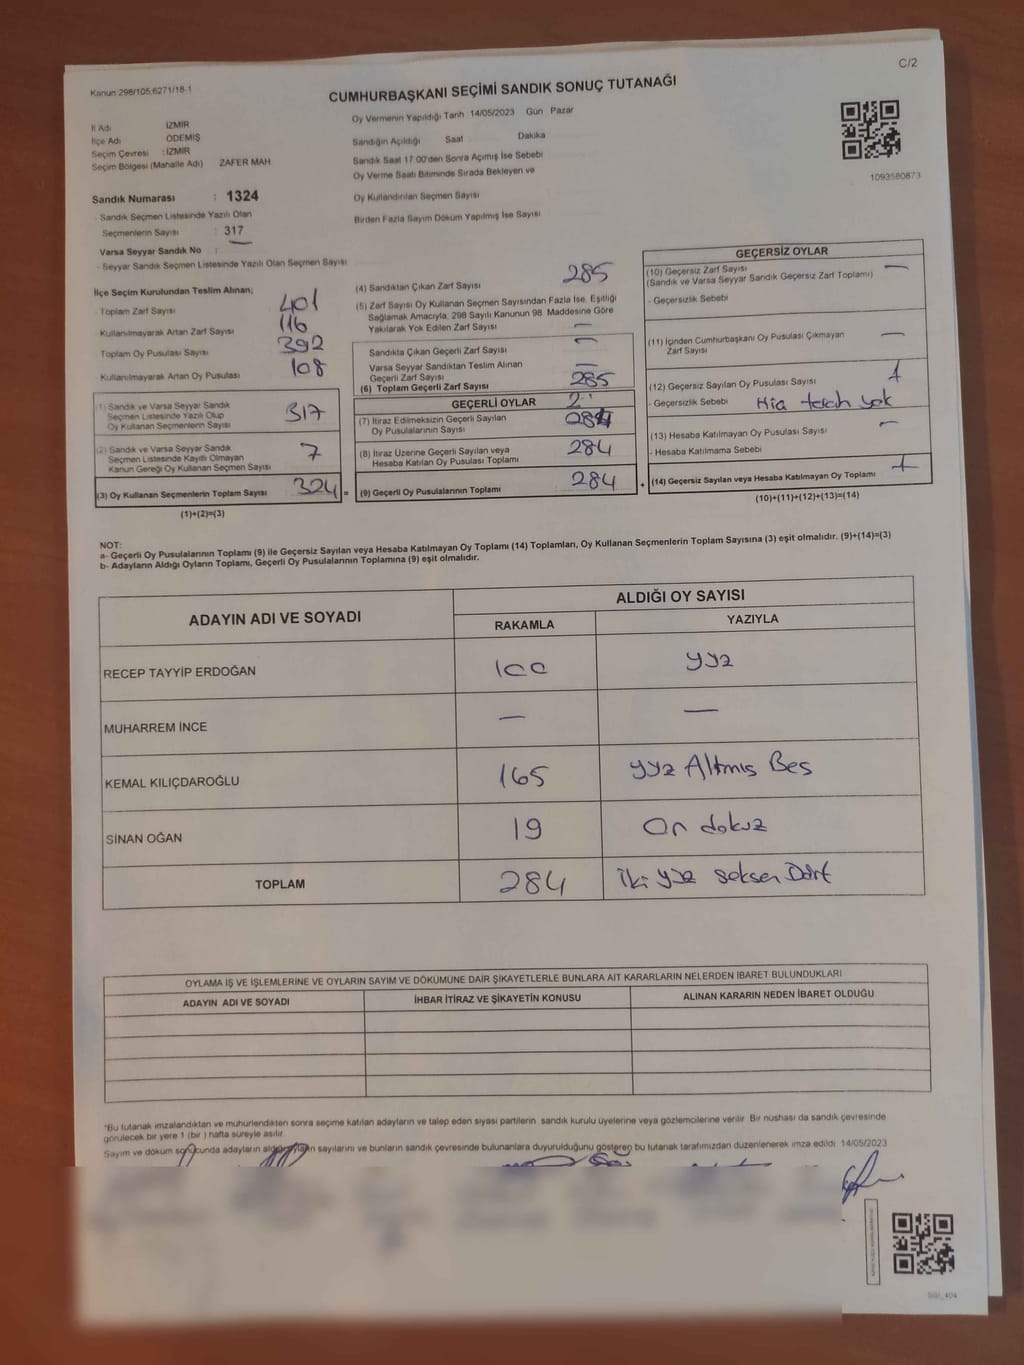 C/2
Kanun 298/105,6271/18-1
CUMHURBAŞKANI SEÇİMİ SANDIK SONUÇ TUTANAĞI
İl Adı İZMİR
İlçe Adı ÖDEMİŞ
Seçim Çevresi : İZMİR
Seçim Bölgesi (Mahalle Adı) ZAFER MAH
Oy Vermenin Yapıldığı Tarih 14/05/2023 Gün Pazar
Sandığın Açıldığı Saat Dakika
Sandık Saat 17:00'den Sonra Açımış İse Sebebi
Oy Verme Saati Bitiminde Sırada Bekleyen ve
Oy Kullandırılan Seçmen Sayısı
Birden Fazla Sayım Döküm Yapılmış İse Sayısı
1093580873
Sandık Numarası : 1324
- Sandık Seçmen Listesinde Yazılı Olan
Seçmenlerin Sayısı : 317
Varsa Seyyar Sandık No :
- Seyyar Sandık Seçmen Listesinde Yazılı Olan Seçmen Sayısı
İlçe Seçim Kurulundan Teslim Alınan;
- Toplam Zarf Sayısı 401
- Kullanılmayarak Artan Zarf Sayısı 116
Toplam Oy Pusulası Sayısı 392
Kullanılmayarak Artan Oy Pusulası 108
(1) Sandık ve Varsa Seyyar Sandık
Seçmen Listesinde Yazılı Olup
Oy Kullanan Seçmenlerin Sayısı 317
(2) Sandık ve Varsa Seyyar Sandık
Seçmen Listesinde Kayıtlı Olmayan
Kanun Gereği Oy Kullanan Seçmen Sayısı 7
(3) Oy Kullanan Seçmenlerin Toplam Sayısı 324 =
(1)+(2)=(3)
(4) Sandıktan Çıkan Zarf Sayısı 285
(5) Zarf Sayısı Oy Kullanan Seçmen Sayısından Fazla İse, Eşitliği
Sağlamak Amacıyla, 298 Sayılı Kanunun 98. Maddesine Göre
Yakılarak Yok Edilen Zarf Sayısı —
Sandıkta Çıkan Geçerli Zarf Sayısı —
Varsa Seyyar Sandıktan Teslim Alınan
Geçerli Zarf Sayısı —
(6) Toplam Geçerli Zarf Sayısı 285
GEÇERLİ OYLAR
(7) İtiraz Edilmeksizin Geçerli Sayılan
Oy Pusulalarının Sayısı 284
(8) İtiraz Üzerine Geçerli Sayılan veya
Hesaba Katılan Oy Pusulası Toplamı 284
(9) Geçerli Oy Pusulalarının Toplamı 284 +
GEÇERSİZ OYLAR
(10) Geçersiz Zarf Sayısı —
(Sandık ve Varsa Seyyar Sandık Geçersiz Zarf Toplamı)
- Geçersizlik Sebebi
(11) İçinden Cumhurbaşkanı Oy Pusulası Çıkmayan
Zarf Sayısı —
(12) Geçersiz Sayılan Oy Pusulası Sayısı 1
- Geçersizlik Sebebi tercih yok
(13) Hesaba Katılmayan Oy Pusulası Sayısı —
- Hesaba Katılmama Sebebi
(14) Geçersiz Sayılan veya Hesaba Katılmayan Oy Toplamı 1
(10)+(11)+(12)+(13)=(14)
NOT:
a- Geçerli Oy Pusulalarının Toplamı (9) ile Geçersiz Sayılan veya Hesaba Katılmayan Oy Toplamı (14) Toplamları, Oy Kullanan Seçmenlerin Toplam Sayısına (3) eşit olmalıdır. (9)+(14)=(3)
b- Adayların Aldığı Oyların Toplamı, Geçerli Oy Pusulalarının Toplamına (9) eşit olmalıdır.
ADAYIN ADI VE SOYADI ALDIĞI OY SAYISI
RAKAMLA YAZIYLA
RECEP TAYYİP ERDOĞAN 100 yyz
MUHARREM İNCE — —
KEMAL KILIÇDAROĞLU 165 yyz Altmış Beş
SİNAN OĞAN 19 On dokuz
TOPLAM 284 İki yyz seksen Dört
OYLAMA İŞ VE İŞLEMLERİNE VE OYLARIN SAYIM VE DÖKÜMÜNE DAİR ŞİKAYETLERLE BUNLARA AİT KARARLARIN NELERDEN İBARET BULUNDUKLARI
ADAYIN ADI VE SOYADI İHBAR İTİRAZ VE ŞİKAYETİN KONUSU ALINAN KARARIN NEDEN İBARET OLDUĞU
*Bu tutanak imzalandıktan ve mühürlendikten sonra seçime katılan adayların ve talep eden siyasi partilerin sandık kurulu üyelerine veya gözlemcilerine verilir. Bir nüshası da sandık çevresinde
görülecek bir yere 1 (bir) hafta süreyle asılır.
Sayım ve döküm sonucunda adayların aldığı oyların sayılarını ve bunların sandık çevresinde bulunanlara duyurulduğunu gösteren bu tutanak tarafımızdan düzenlenerek imza edildi. 14/05/2023